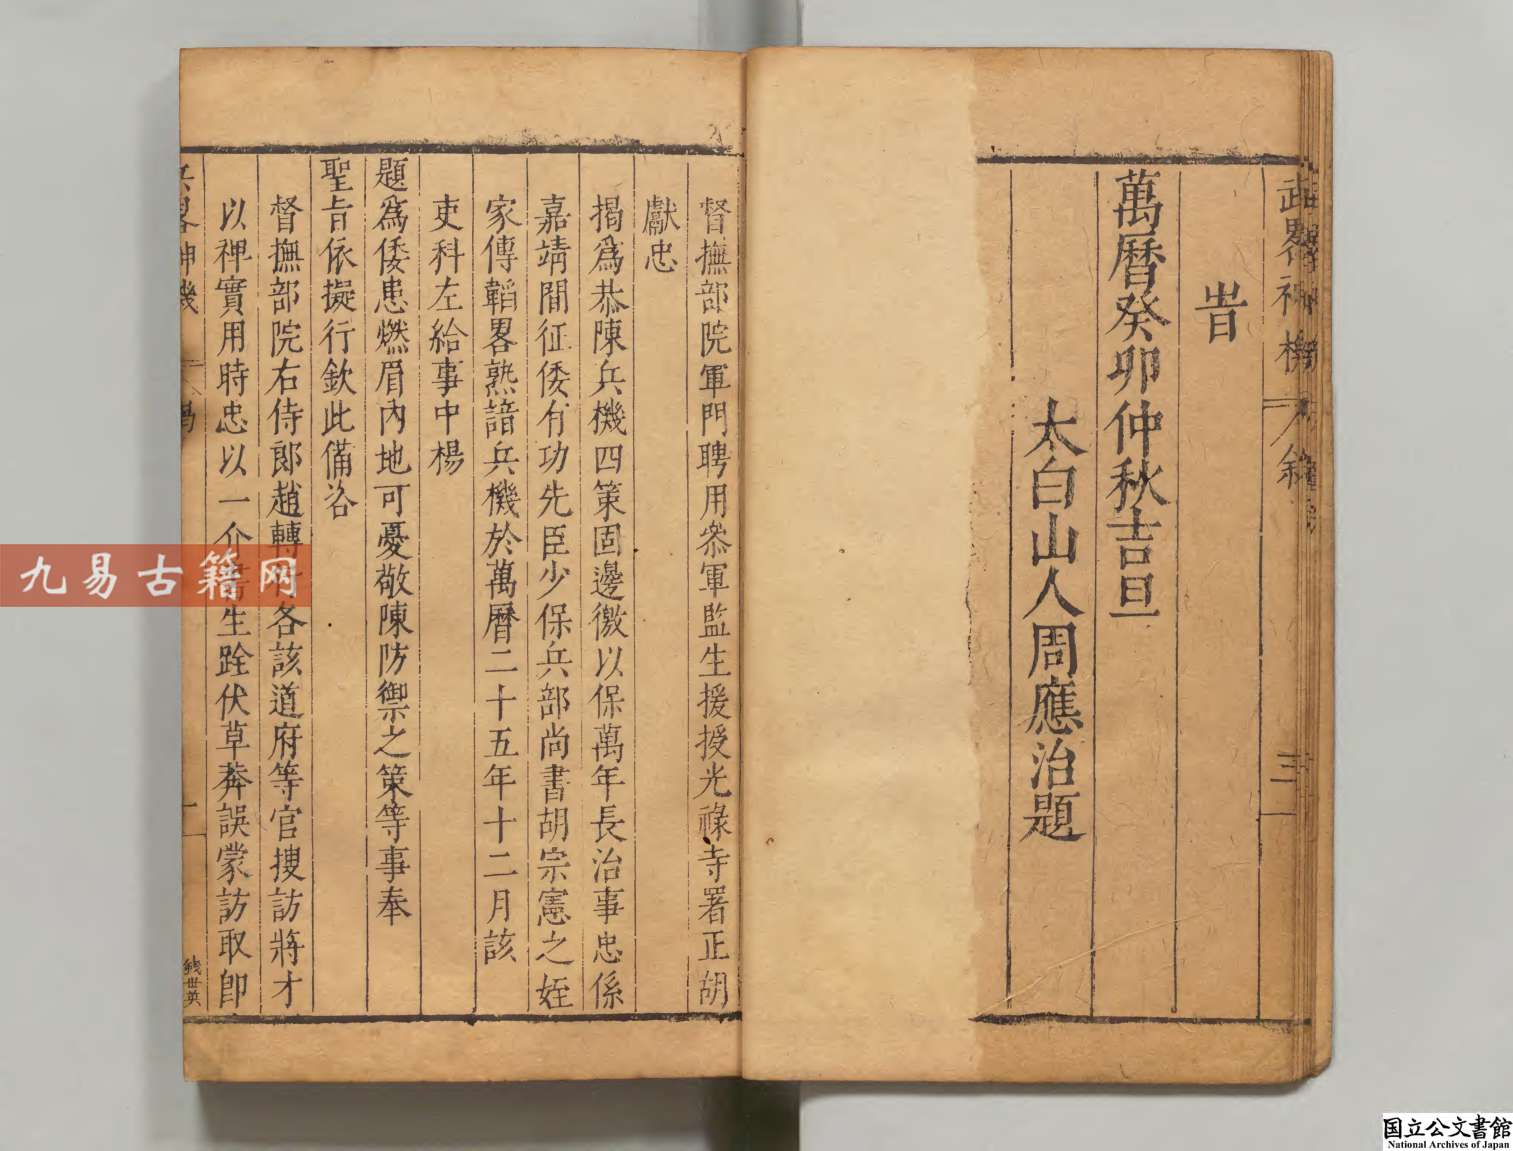 武畧神機
三
旹
萬曆癸卯仲秋吉旦
太白山人周應治題
督撫部院軍門聘用叅軍監生援授光祿寺署正胡
獻忠
揭爲恭陳兵機四策固邊徼以保萬年長治事忠係
嘉靖間征倭有功先臣少保兵部尚書胡宗憲之姪
家傳韜畧熟諳兵機於萬曆二十五年十二月該
吏科左給事中楊
題爲倭患燃眉內地可憂敬陳防禦之策等事奉
聖旨依擬行欽此備咨
督撫部院右侍郎趙轉各該道府等官搜訪將才
以禆實用時忠以一介書生跧伏草莽誤蒙訪取卽
兵畧神機
揭
一
錢世英
九易古籍网
国立公文書館
National Archives of Japan